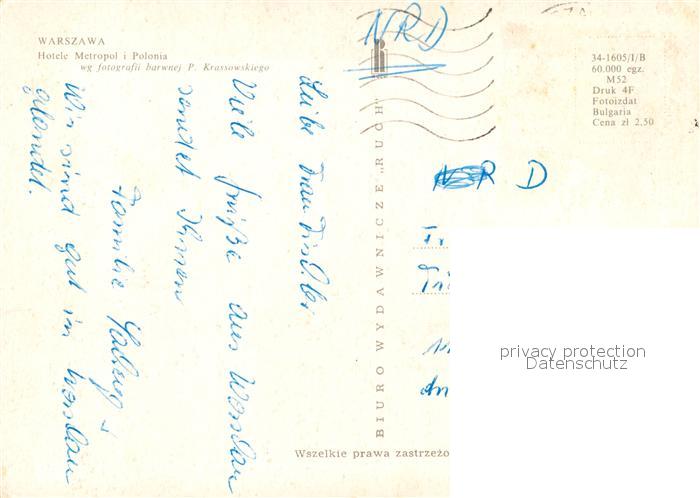 WARSZAWA
Hotele Metropol i Polonia
wg fotografii barwnej P. Krassowskiego
NRD
34-1605/I/B
60.000 egz.
M52
Druk 4F
Fotoizdat
Bulgaria
Cena zł 2,50
Liebe Frau
Viele Grüße aus Warschau
sendet Ihnen
Familie
Wir sind gut in Warschau
gelandet.
BIURO WYDAWNICZE „RUCH"
NRD
Fr
An
Wszelkie prawa zastrzeżo
privacy protection
Datenschutz